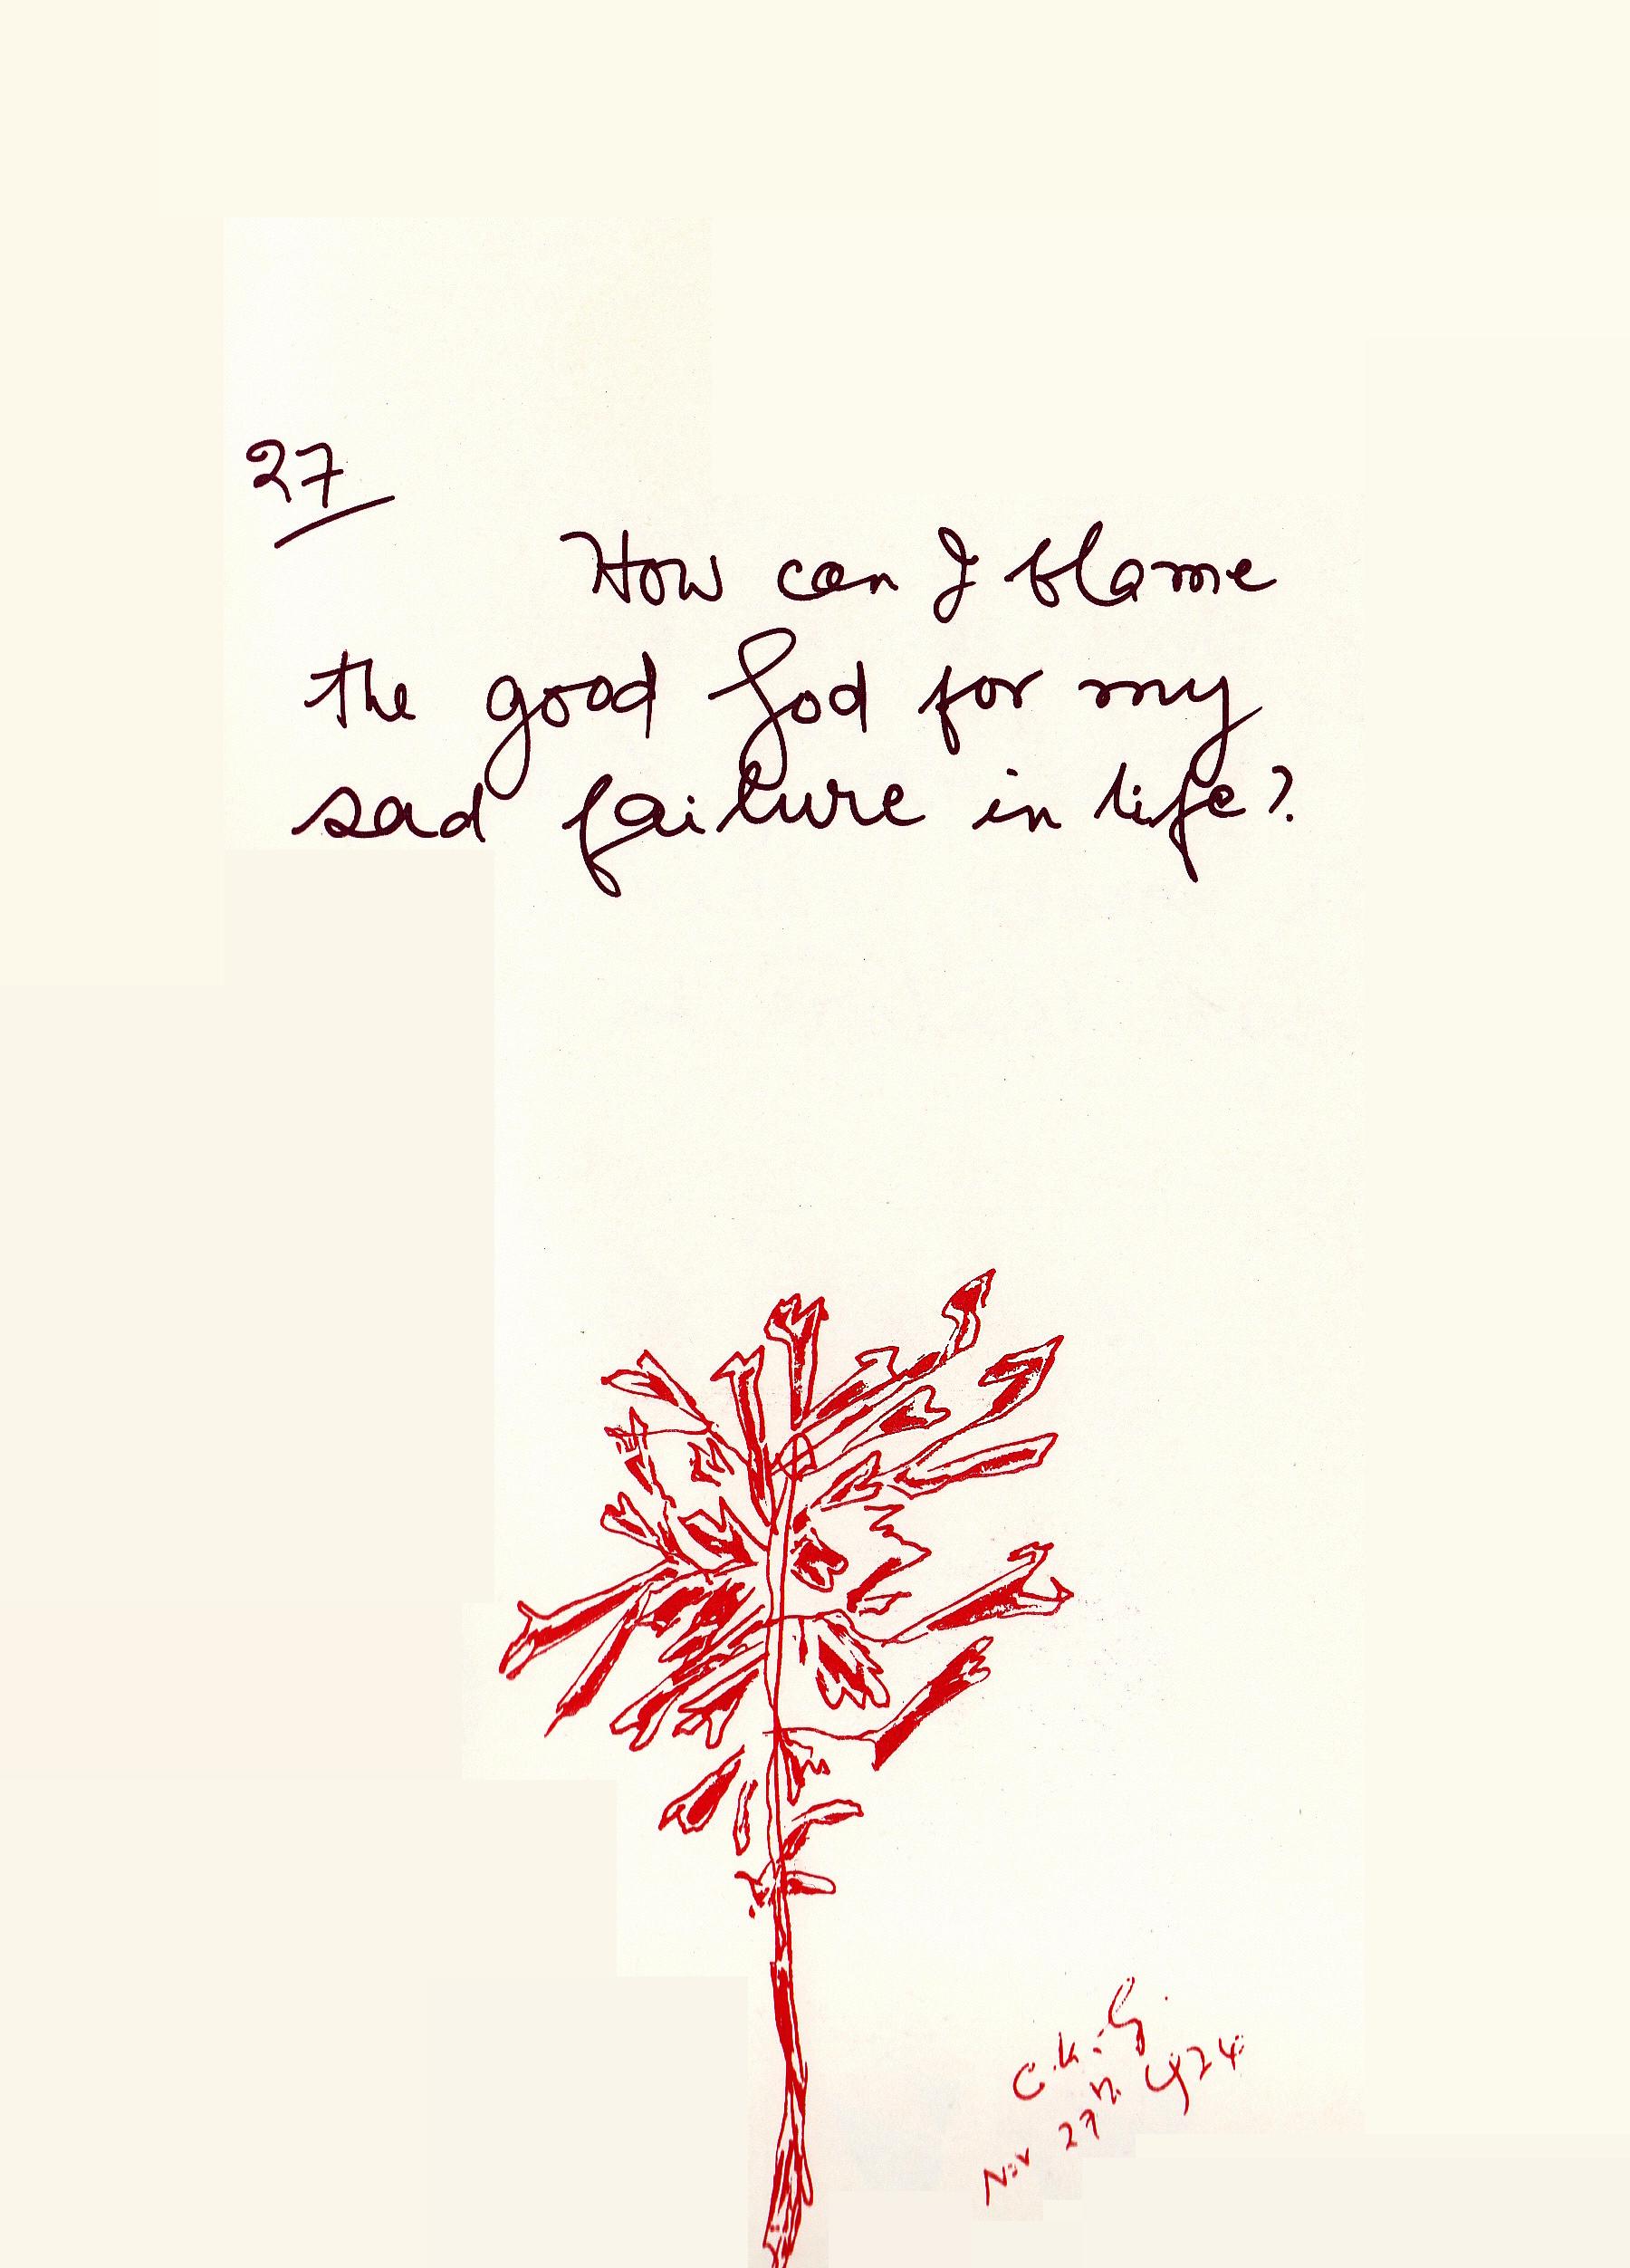 27
How can I blame
the good God for my
sad failure in life?
C.K.G.
Nov 27th